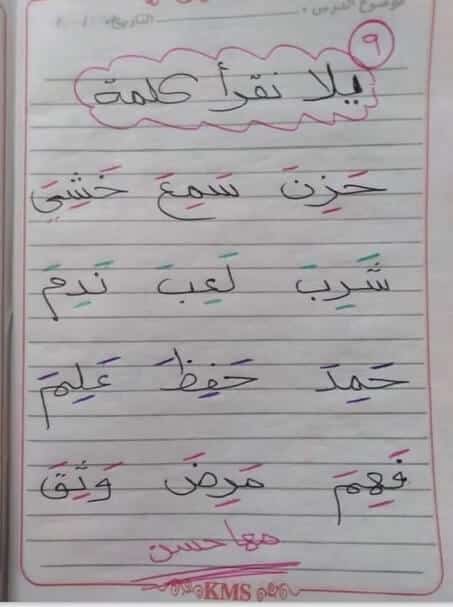 موضوع الدرس: التاريخ:
٩
يلا نقرأ كلمة
حَزِنَ سَمِعَ خَشِيَ
شَرِبَ لَعِبَ نَدِمَ
حَمِدَ حَفِظَ عَلِمَ
فَهِمَ مَرِضَ وَثِقَ
مها حسن
KMS